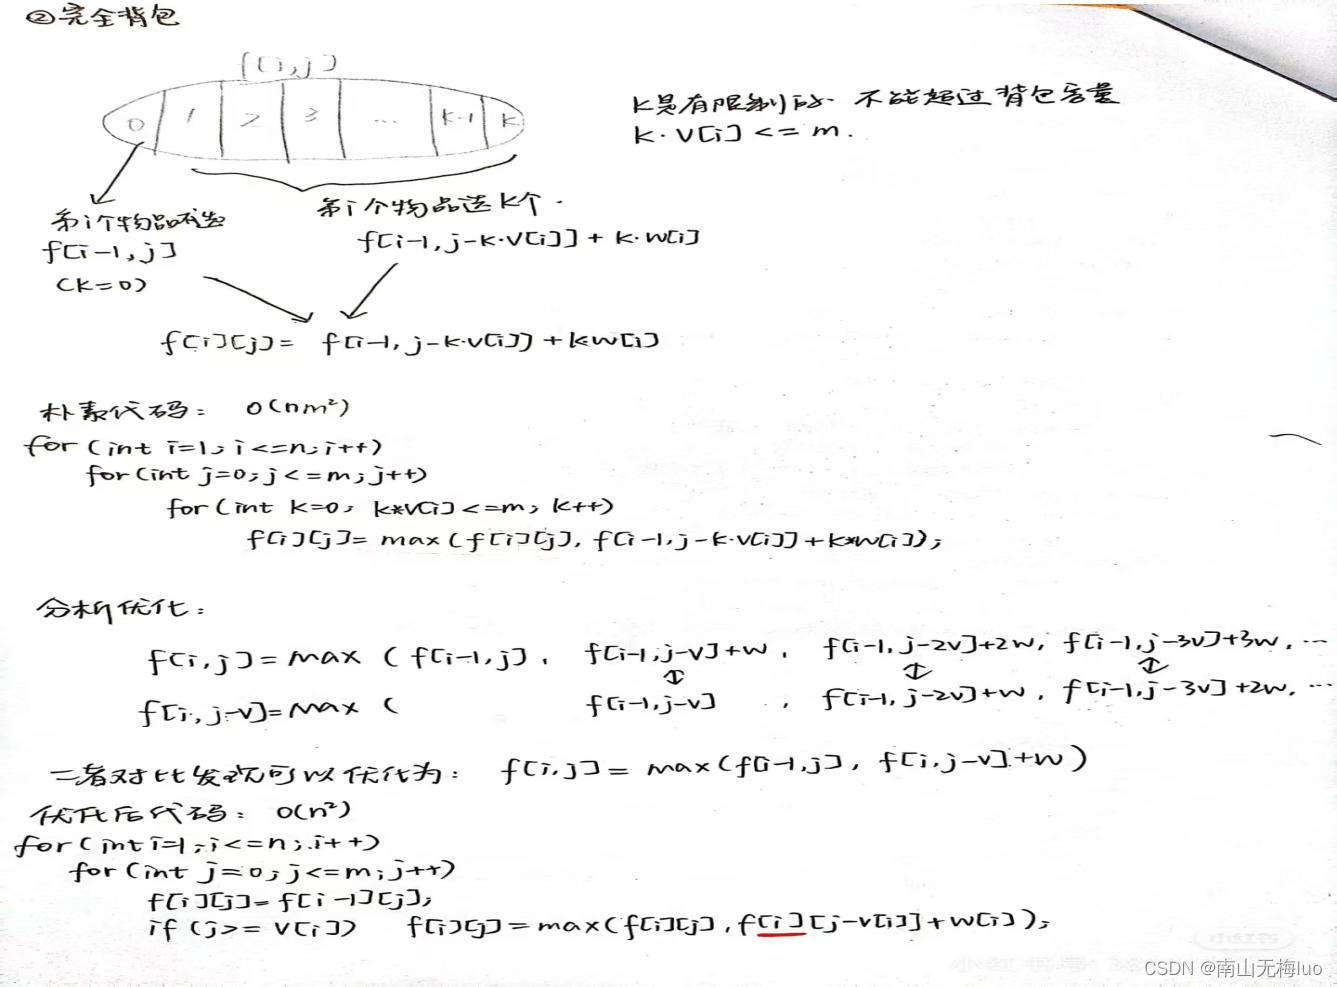 ②完全背包
f[i,j]
0 1 2 3 ... k-1 k
k是有限制的. 不能超过背包容量
k·v[i] <= m.
第i个物品不选
f[i-1,j]
(k=0)
第i个物品选k个.
f[i-1, j-k·v[i]] + k·w[i]
f[i][j] = f[i-1, j-k·v[i]] + kw[i]
朴素代码: O(nm²)
for (int i=1; i<=n; i++)
for (int j=0; j<=m; j++)
for (int k=0; k*v[i]<=m; k++)
f[i][j] = max(f[i][j], f[i-1, j-k·v[i]]+k*w[i]);
分析优化:
f[i,j] = max ( f[i-1,j], f[i-1,j-v]+w, f[i-1, j-2v]+2w, f[i-1,j-3v]+3w, ...
f[i,j-v] = max ( f[i-1,j-v] , f[i-1, j-2v]+w, f[i-1,j-3v]+2w, ...
二者对比发现可以优化为: f[i,j] = max(f[i-1,j], f[i,j-v]+w)
优化后代码: O(n²)
for (int i=1; i<=n; i++)
for (int j=0; j<=m; j++)
f[i][j] = f[i-1][j];
if (j>=v[i]) f[i][j] = max(f[i][j], f[i][j-v[i]]+w[i]);
小红书
CSDN @南山无梅luo